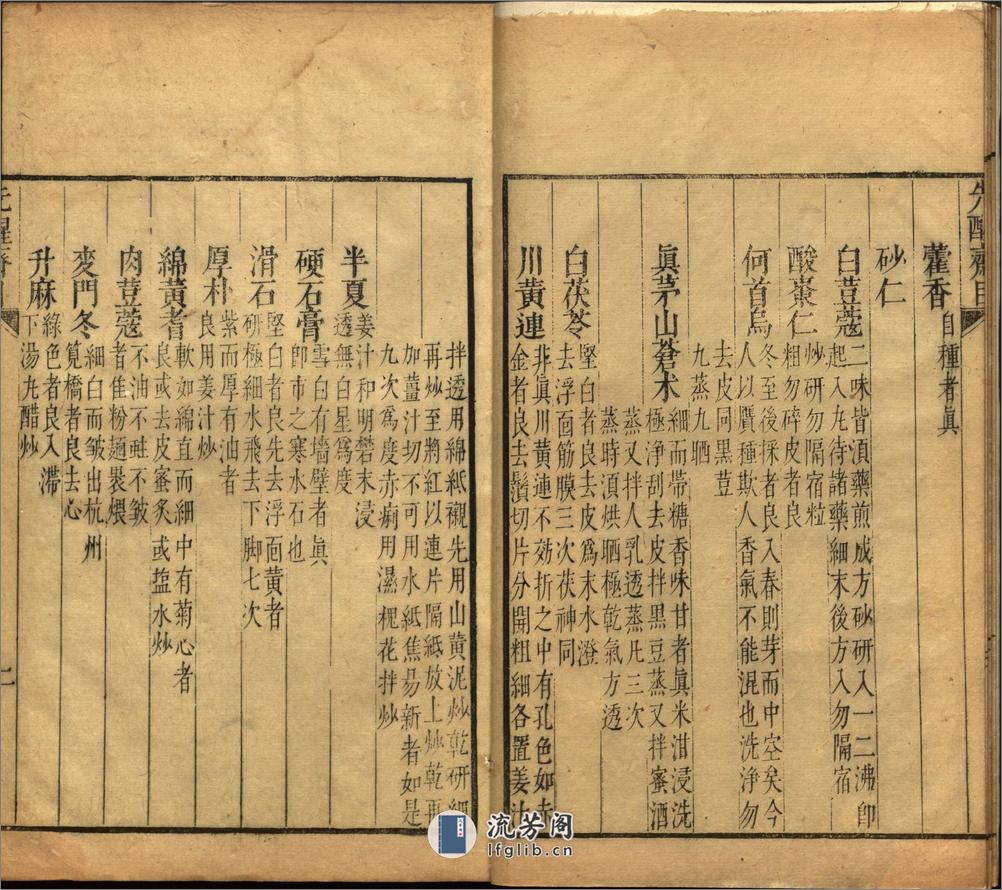 先醒齋
藿香 自種者眞
砂仁
白荳蔻 二味皆湏藥煎成方砂研入一二沸即
起入丸待諸藥細末後方入勿隔宿
酸棗仁 炒研勿隔宿粒
粗勿碎皮者良
何首烏 冬至後採者良入春則芽而中空矣今
人以贋種欺人香氣不能混也洗淨勿
去皮同黑荳
九蒸九晒
眞茅山蒼朮 細而帶糖香味甘者眞米泔浸洗
極淨刮去皮拌黑豆蒸又拌蜜酒
蒸又拌人乳透蒸凡三次
蒸時湏烘晒極乾氣方透
白茯苓 堅白者良去皮爲末水澄
去浮面筋膜三次茯神同
川黃連 非眞川黃連不効折之中有孔色如赤
金者良去鬚切片分開粗細各置姜汁
拌透用綿紙襯先用山黃泥炒乾研細
再炒至將紅以連片隔紙放上炒乾再
加薑汁切不可用水紙焦易新者如是
九次爲度赤痢用濕槐花拌炒
半夏 姜汁和明礬末浸
透無白星爲度
硬石膏 雪白有墻壁者眞
即市之寒水石也
滑石 堅白者良先去浮面黃者
研極細水飛去下脚七次
厚朴 紫而厚有油者
良用姜汁炒
綿黃耆 軟如綿直而細中有菊心者
良或去皮蜜炙或塩水炒
肉荳蔻 不油不蛀不皺
者佳粉麵褁煨
麥門冬 細白而皺出杭州
筧橋者良去心
升麻 綠色者良入滯
下湯九醋炒
流芳阁
lfglib.cn